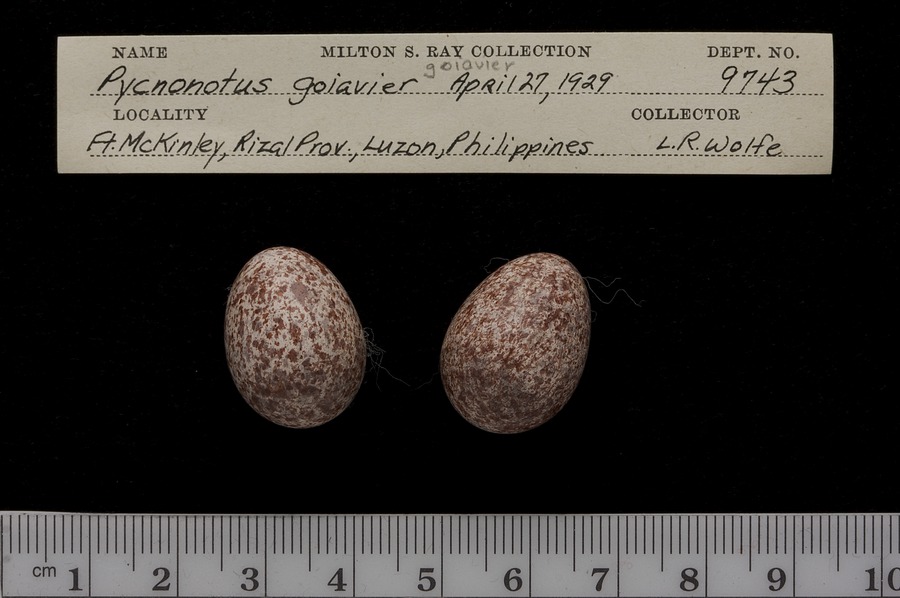 NAME MILTON S. RAY COLLECTION DEPT. NO.
goiavier
Pycnonotus goiavier April 27, 1929 9743
LOCALITY COLLECTOR
Ft. McKinley, Rizal Prov., Luzon, Philippines L.R. Wolfe
cm 1 2 3 4 5 6 7 8 9 10